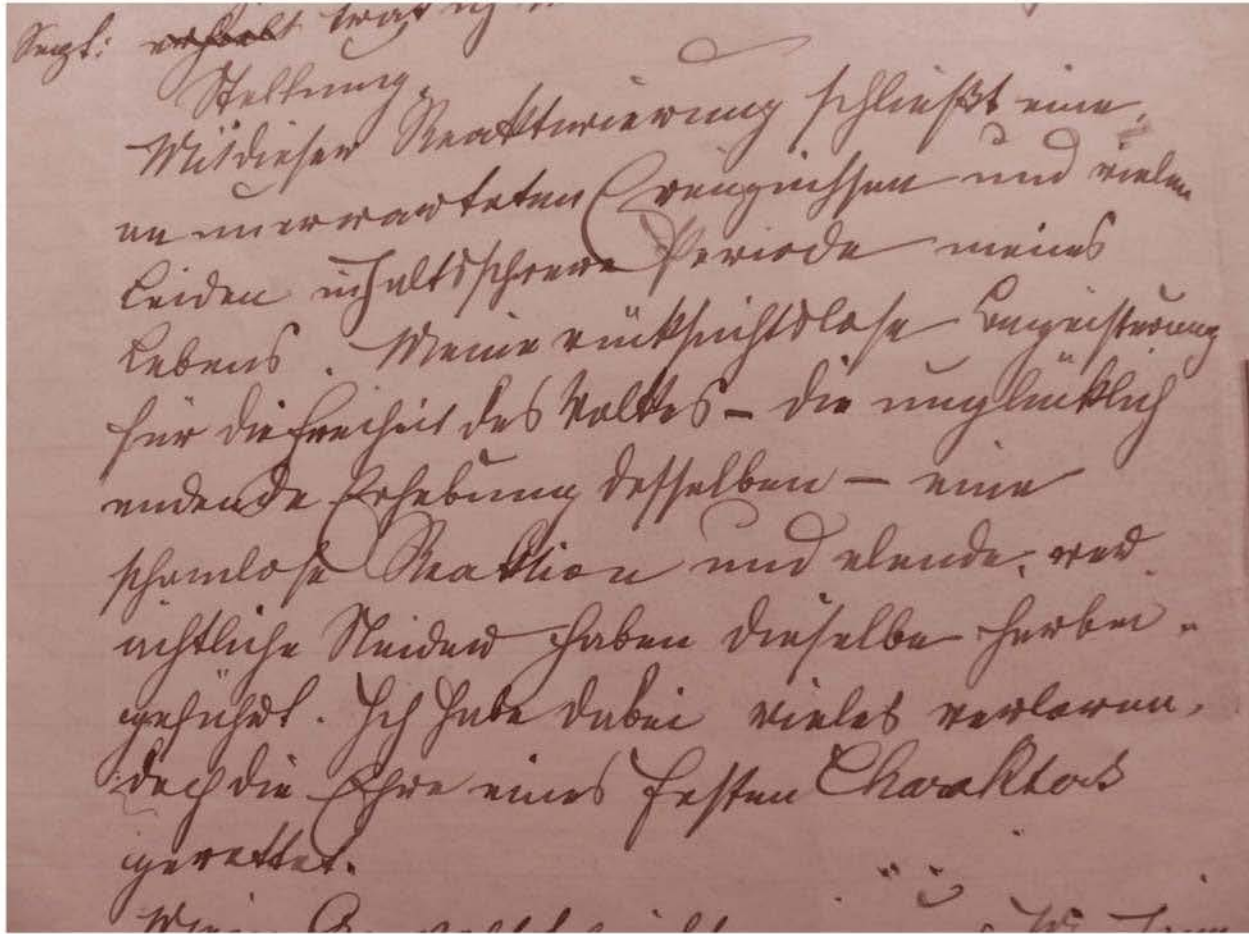 Sept: erhielt trat ich
Stellung.
Mit dieser Reaktivierung schließt eine,
an unerwarteten Ereignissen und vielen
Leiden inhaltsschwere Periode meines
Lebens. Meine rücksichtslose Begeisterung
für die Freiheit des Volkes – die unglücklich
endende Erhebung desselben – eine
schamlose Reaktion und elende, ver-
ächtliche Neider haben dieselbe herbei-
geführt. Ich habe dabei vieles verloren,
doch die Ehre eines festen Charakters
gerettet.